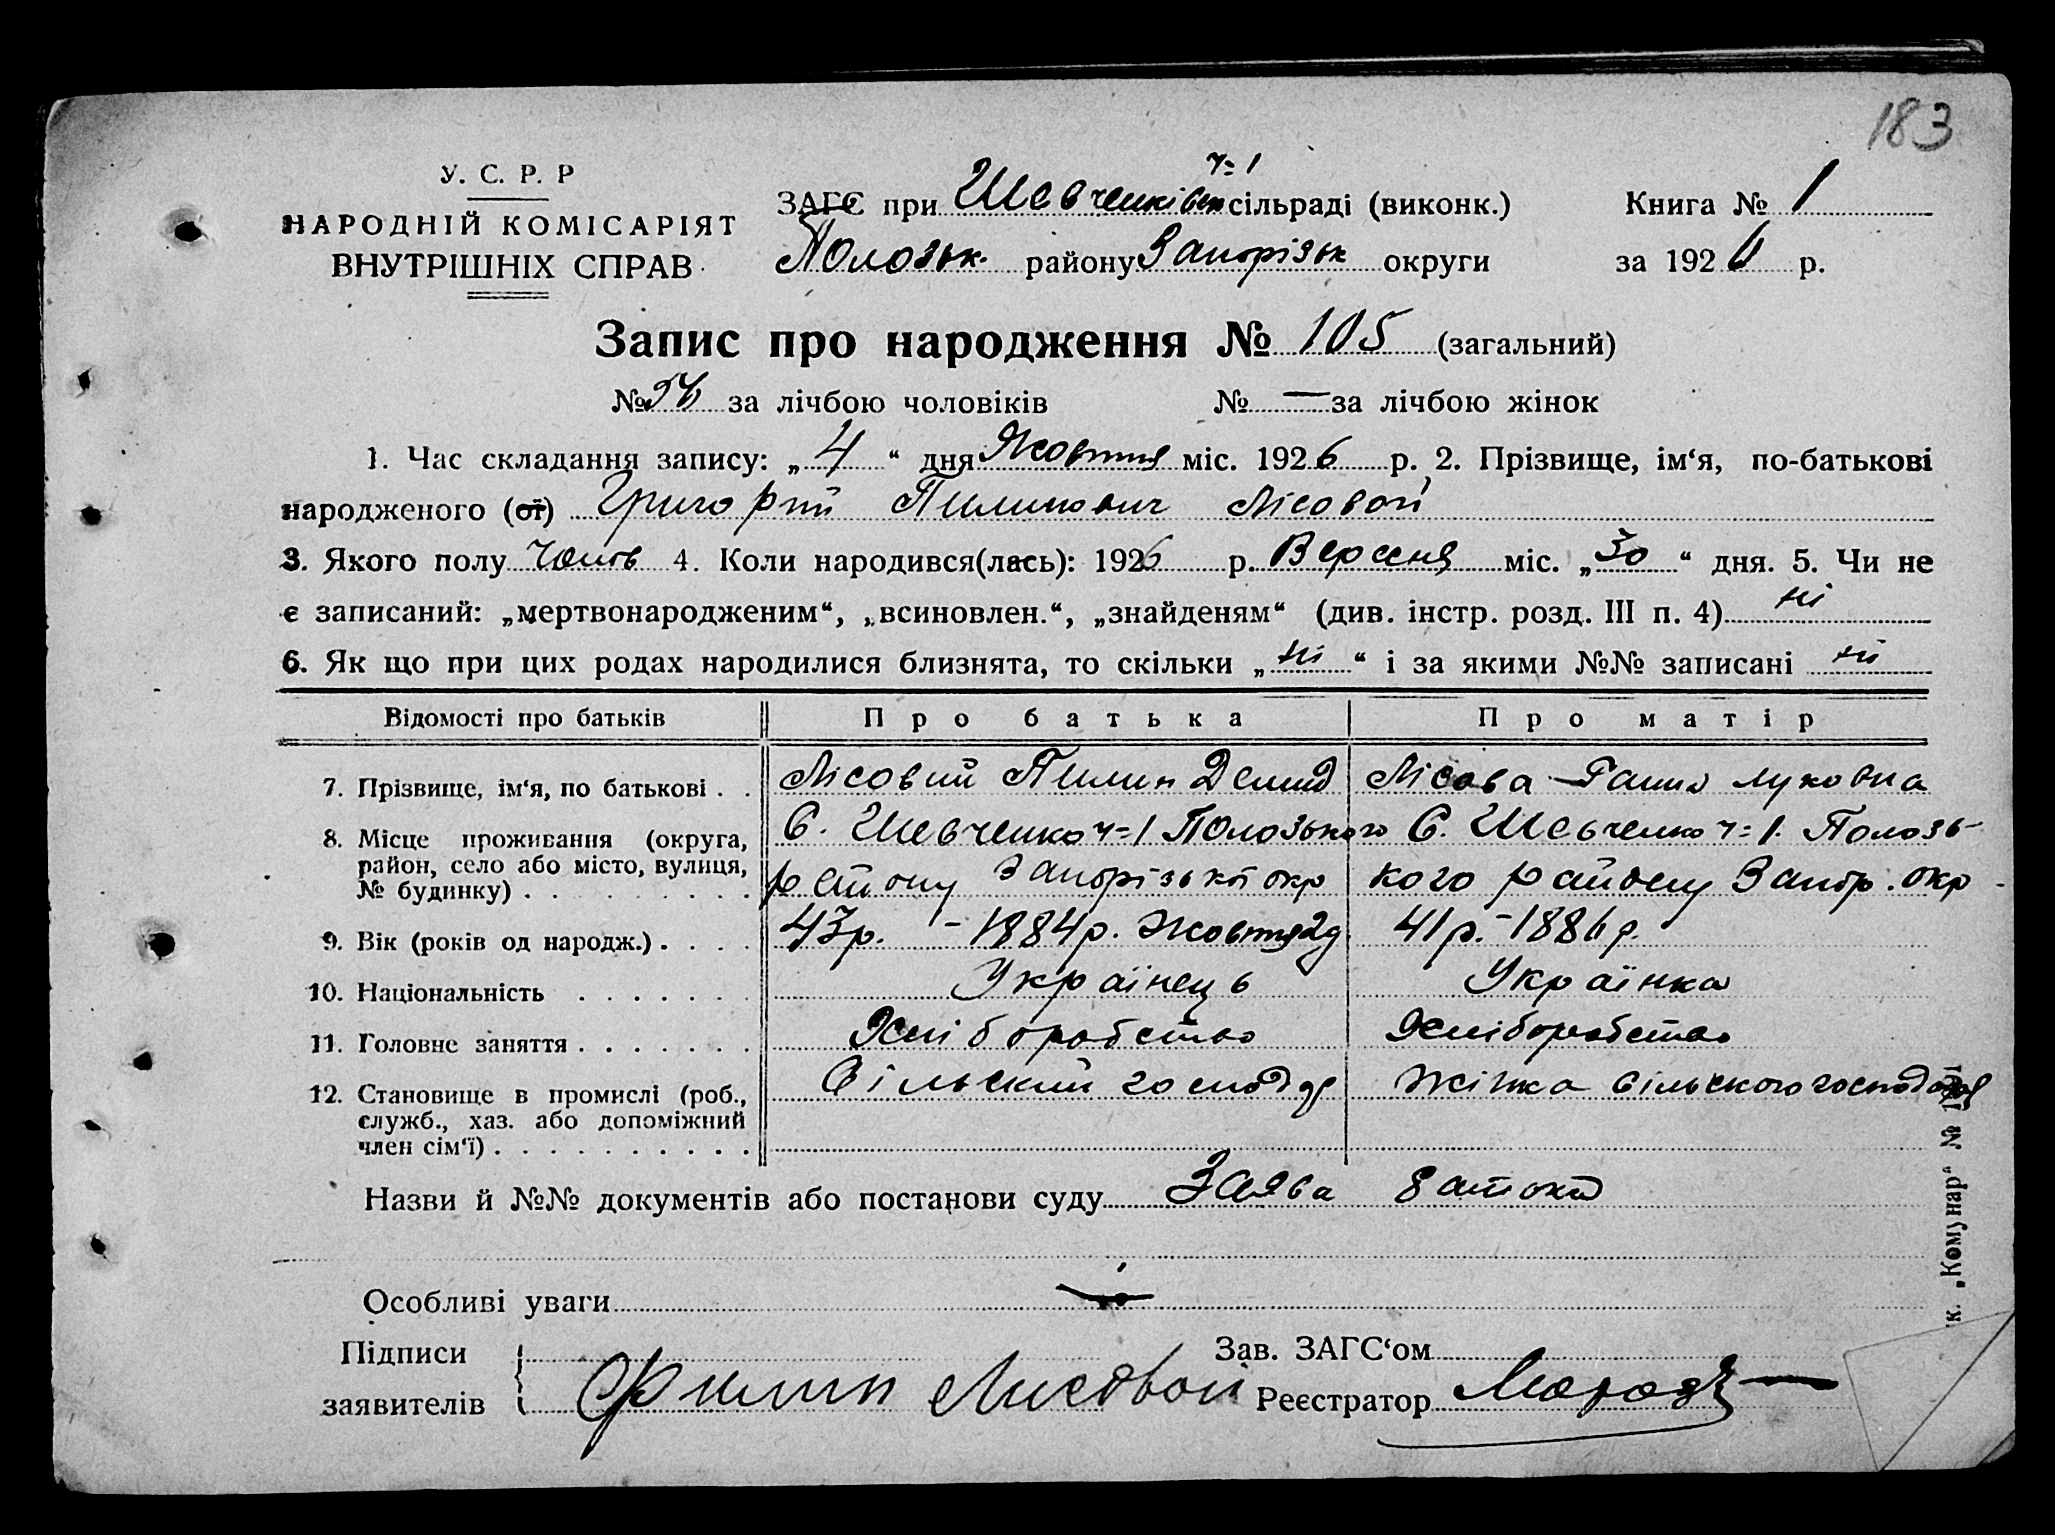 183
У. С. Р. Р
НАРОДНІЙ КОМІСАРІЯТ
ВНУТРІШНІХ СПРАВ
ч=1
ЗАГС при Шевченківск сільраді (виконк.)
Полозьк. району Запорізьк округи
Книга № 1
за 1926 р.
Запис про народження № 105 (загальний)
№ за лічбою чоловіків № — за лічбою жінок
1. Час складання запису: „4“ дня Жовтня міс. 1926 р. 2. Прізвище, ім‘я, по-батькові
народженого (ої) Григорий Пилипович Лісовой
3. Якого полу 4. Коли народився(лась): 1926 р. Вересня міс. „30“ дня. 5. Чи не
є записаний: „мертвонародженим“, „всиновлен.“, „знайденям“ (див. інстр. розд. III п. 4) ні
6. Як що при цих родах народилися близнята, то скільки „ні“ і за якими №№ записані ні
Відомості про батьків Про батька Про матір
7. Прізвище, ім‘я, по батькові . . Лісовий Пилип Демид Лісова Ганна Луковна
8. Місце проживання (округа, район, село або місто, вулиця, № будинку) . С. Шевченко ч=1 Полозького С. Шевченко ч=1. Полозь-
району Запорізької окр кого району Запор. окр
9. Вік (років од народж.) . . . . 43р. – 1884р. Жовтня 2д 41р. – 1886р.
10. Національність . . . . . . . Українець Українка
11. Головне заняття . . . . . . . Хліборобство Хліборобство
12. Становище в промислі (роб., служб., хаз. або допоміжний член сім‘ї) . Сільский господар Жінка сільского господаря
Назви й №№ документів або постанови суду Заява батька
Особливі уваги
Підписи
заявителів Филип Лисовой
Зав. ЗАГС‘ом
Реєстратор
к. „Комунар“ №